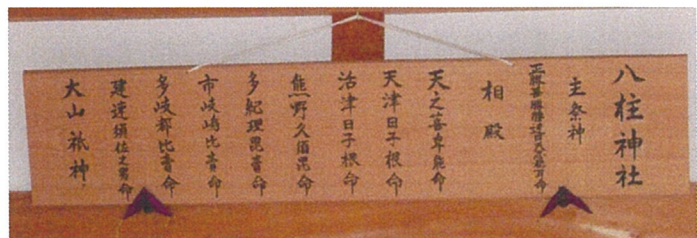 八柱神社
主祭神
正勝吾勝勝速日天忍穂耳命
相殿
天之善卑能命
天津日子根命
活津日子根命
熊野久須毘命
多紀理毘賣命
市岐嶋比賣命
多岐都比賣命
建速須佐之男命
大山祇神